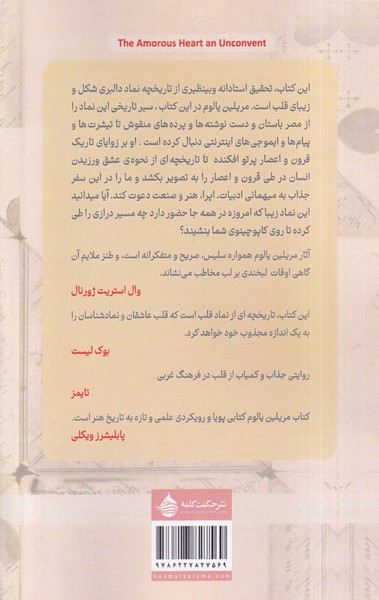 The Amorous Heart an Unconvent
این کتاب، تحقیق استادانه وبینظیری از تاریخچه نماد دالبری شکل و
زیبای قلب است. مریلین یالوم در این کتاب ، سیر تاریخی این نماد را
از مصر باستان و دست نوشته‌ها و پرده‌های منقوش تا تیشرت‌ها و
پیام‌ها و ایموجی‌های اینترنتی دنبال کرده است . او بر زوایای تاریک
قرون و اعصار پرتو افکنده تا تاریخچه‌ای از نحوه‌ی عشق ورزیدن
انسان در طی قرون و اعصار را به تصویر بکشد و ما را در این سفر
جذاب به میهمانی ادبیات، اپرا، هنر و صنعت دعوت کند. آیا میدانید
این نماد زیبا که امروزه در همه جا حضور دارد چه مسیر درازی را طی
کرده تا روی کاپوچینوی شما بنشیند؟
آثار مریلین یالوم همواره سلیس، صریح و متفکرانه است، و طنز ملایم آن
گاهی اوقات لبخندی بر لب مخاطب می‌نشاند.
وال استریت ژورنال
این کتاب، تاریخچه ای از نماد قلب است که قلب عاشقان و نمادشناسان را
به یک اندازه مجذوب خود خواهد کرد.
بوک لیست
روایتی جذاب و کمیاب از قلب در فرهنگ غربی
تایمز
کتاب مریلین یالوم کتابی پویا و رویکردی علمی و تازه به تاریخ هنر است.
پابلیشرز ویکلی
نشر حکمت کلمه
۹۷۸۶۲۲۷۸۲۷۵۶۹
hekmatkalame.com